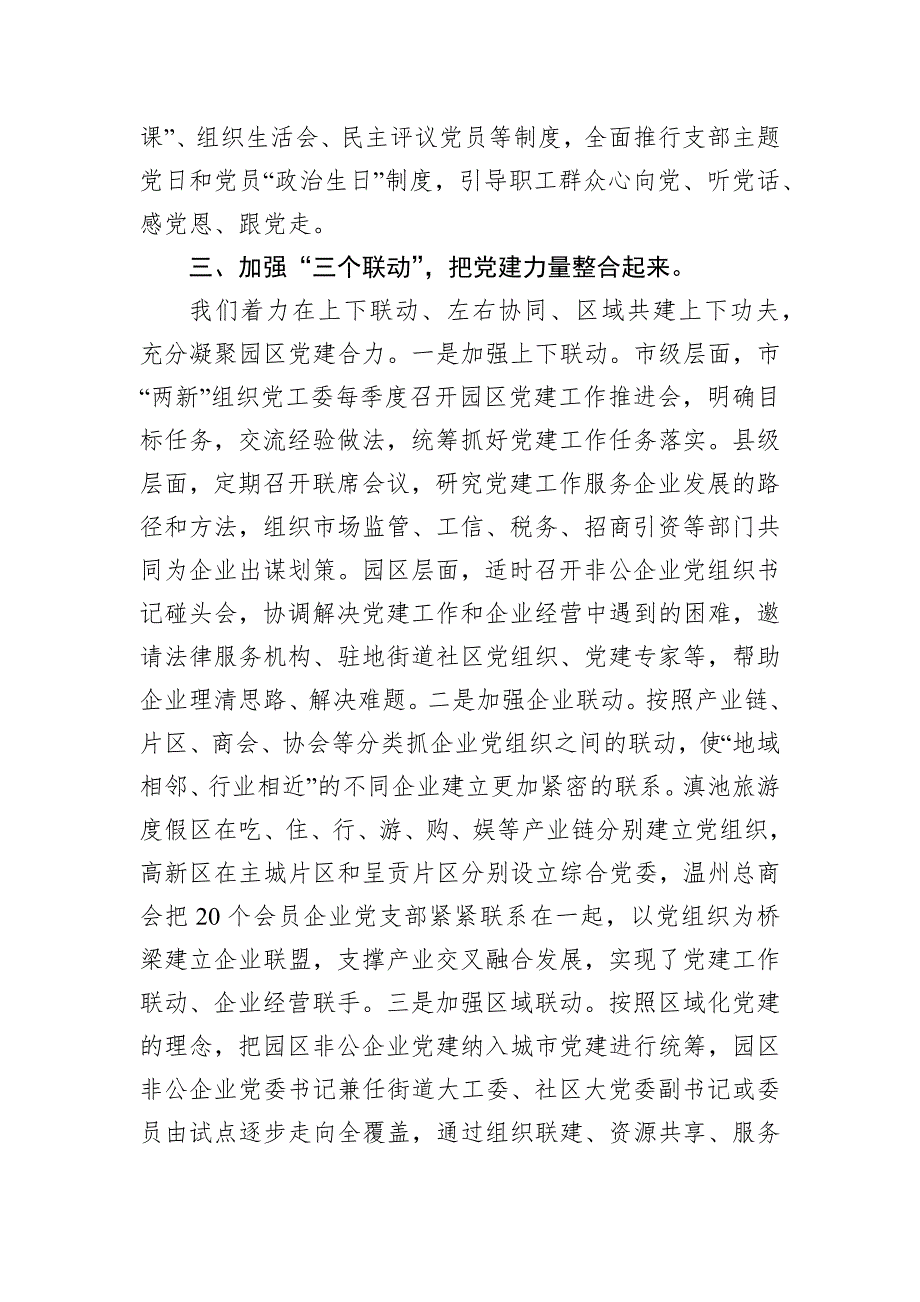 课”、组织生活会、民主评议党员等制度，全面推行支部主题
党日和党员“政治生日”制度，引导职工群众心向党、听党话、
感党恩、跟党走。
三、加强“三个联动”，把党建力量整合起来。
我们着力在上下联动、左右协同、区域共建上下功夫，
充分凝聚园区党建合力。一是加强上下联动。市级层面，市
“两新”组织党工委每季度召开园区党建工作推进会，明确目
标任务，交流经验做法，统筹抓好党建工作任务落实。县级
层面，定期召开联席会议，研究党建工作服务企业发展的路
径和方法，组织市场监管、工信、税务、招商引资等部门共
同为企业出谋划策。园区层面，适时召开非公企业党组织书
记碰头会，协调解决党建工作和企业经营中遇到的困难，邀
请法律服务机构、驻地街道社区党组织、党建专家等，帮助
企业理清思路、解决难题。二是加强企业联动。按照产业链、
片区、商会、协会等分类抓企业党组织之间的联动，使“地域
相邻、行业相近”的不同企业建立更加紧密的联系。滇池旅游
度假区在吃、住、行、游、购、娱等产业链分别建立党组织，
高新区在主城片区和呈贡片区分别设立综合党委，温州总商
会把 20 个会员企业党支部紧紧联系在一起，以党组织为桥
梁建立企业联盟，支撑产业交叉融合发展，实现了党建工作
联动、企业经营联手。三是加强区域联动。按照区域化党建
的理念，把园区非公企业党建纳入城市党建进行统筹，园区
非公企业党委书记兼任街道大工委、社区大党委副书记或委
员由试点逐步走向全覆盖，通过组织联建、资源共享、服务